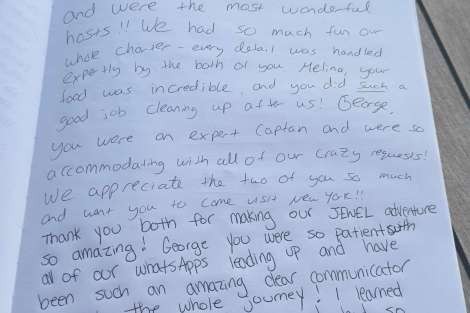 and were the most wonderful
hosts!! We had so much fun our
whole charter - every detail was handled
expertly by the both of you Melina, your
food was incredible, and you did such a
good job cleaning up after us! George,
you were an expert captain and were so
accommodating with all of our crazy requests!
We appreciate the two of you so much
and want you to come visit New York!!
Thank you both for making our JEWEL adventure
so amazing! George you were so patient with
all of our whatsApps leading up and have
been such an amazing clear communicator
the whole journey! I learned
so